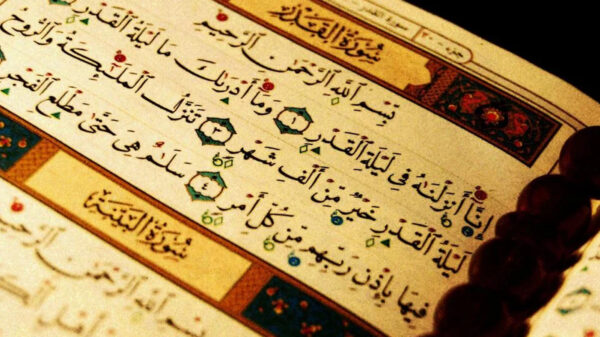 سورة القدر
سُورَةُ القَدْرِ
بِسْمِ اللَّهِ الرَّحْمَٰنِ الرَّحِيمِ
إِنَّا أَنزَلْنَٰهُ فِي لَيْلَةِ الْقَدْرِ ١ وَمَا أَدْرَىٰكَ مَا لَيْلَةُ الْقَدْرِ
لَيْلَةُ الْقَدْرِ خَيْرٌ مِّنْ أَلْفِ شَهْرٍ ٣ تَنَزَّلُ الْمَلَٰئِكَةُ وَالرُّوحُ
فِيهَا بِإِذْنِ رَبِّهِم مِّن كُلِّ أَمْرٍ ٤ سَلَٰمٌ هِيَ حَتَّىٰ مَطْلَعِ الْفَجْرِ
سُورَةُ البَيِّنَة
بِسْمِ اللَّهِ الرَّحْمَٰنِ الرَّحِيمِ
أَهْلِ